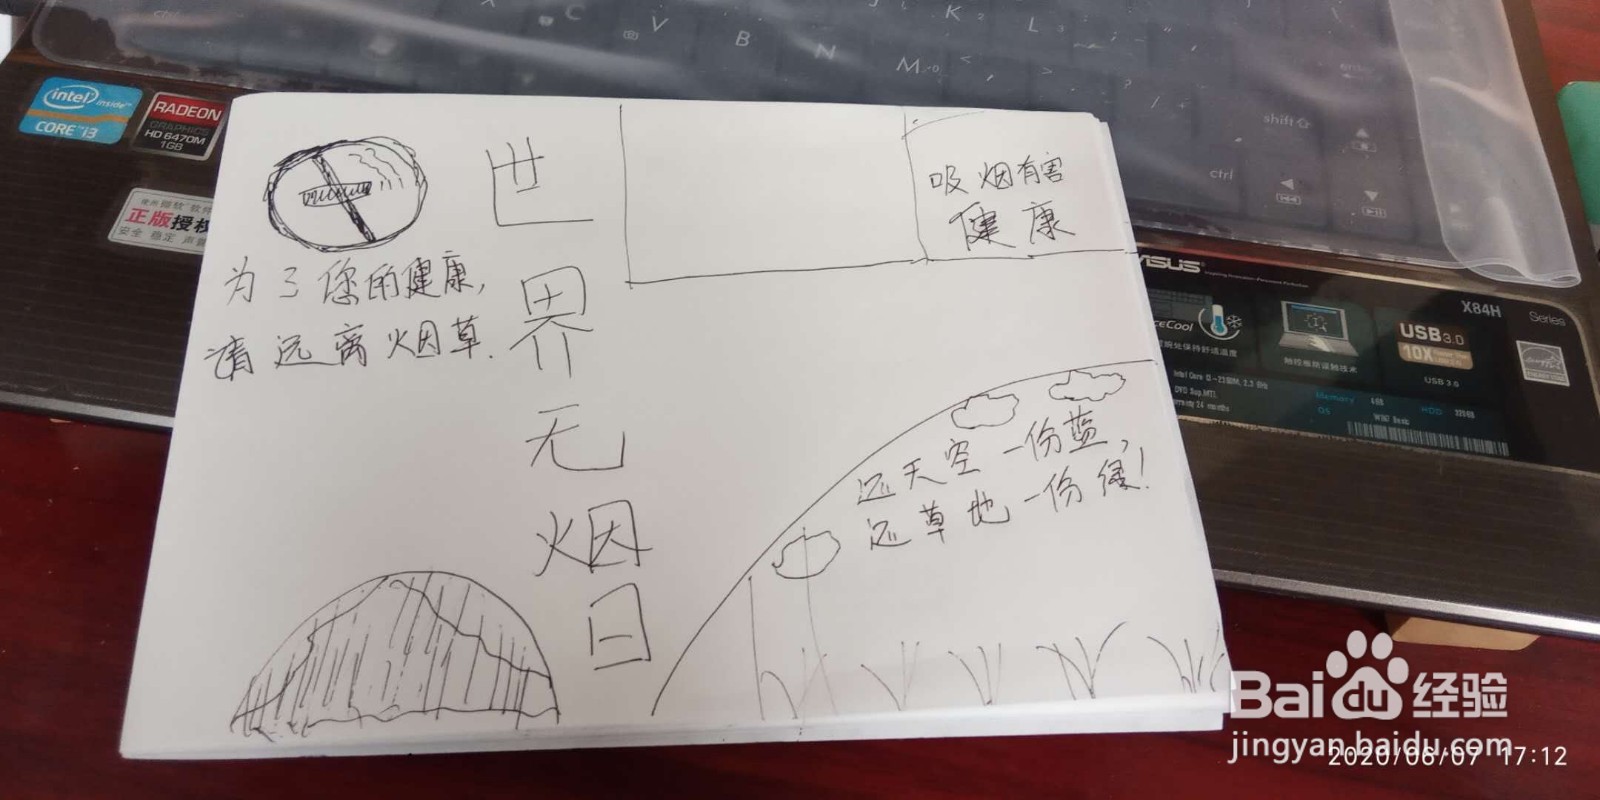 intel inside™
CORE™i3
RADEON
GRAPHICS
HD 6470M
1GB
正版授权
安全 稳定
X
C
V
B
N
M
K
L
enter
shift⇧
ctrl
世
界
无
烟
日
为了您的健康,
请远离烟草.
吸烟有害
健康
还天空一份蓝,
还草地一份绿!
ASUS
X84H
Series
IceCool
USB3.0
10X
USB 3.0
Memory
HDD
OS
Bai du 经验
jingyan.baidu.com
2020/06/07 17:12